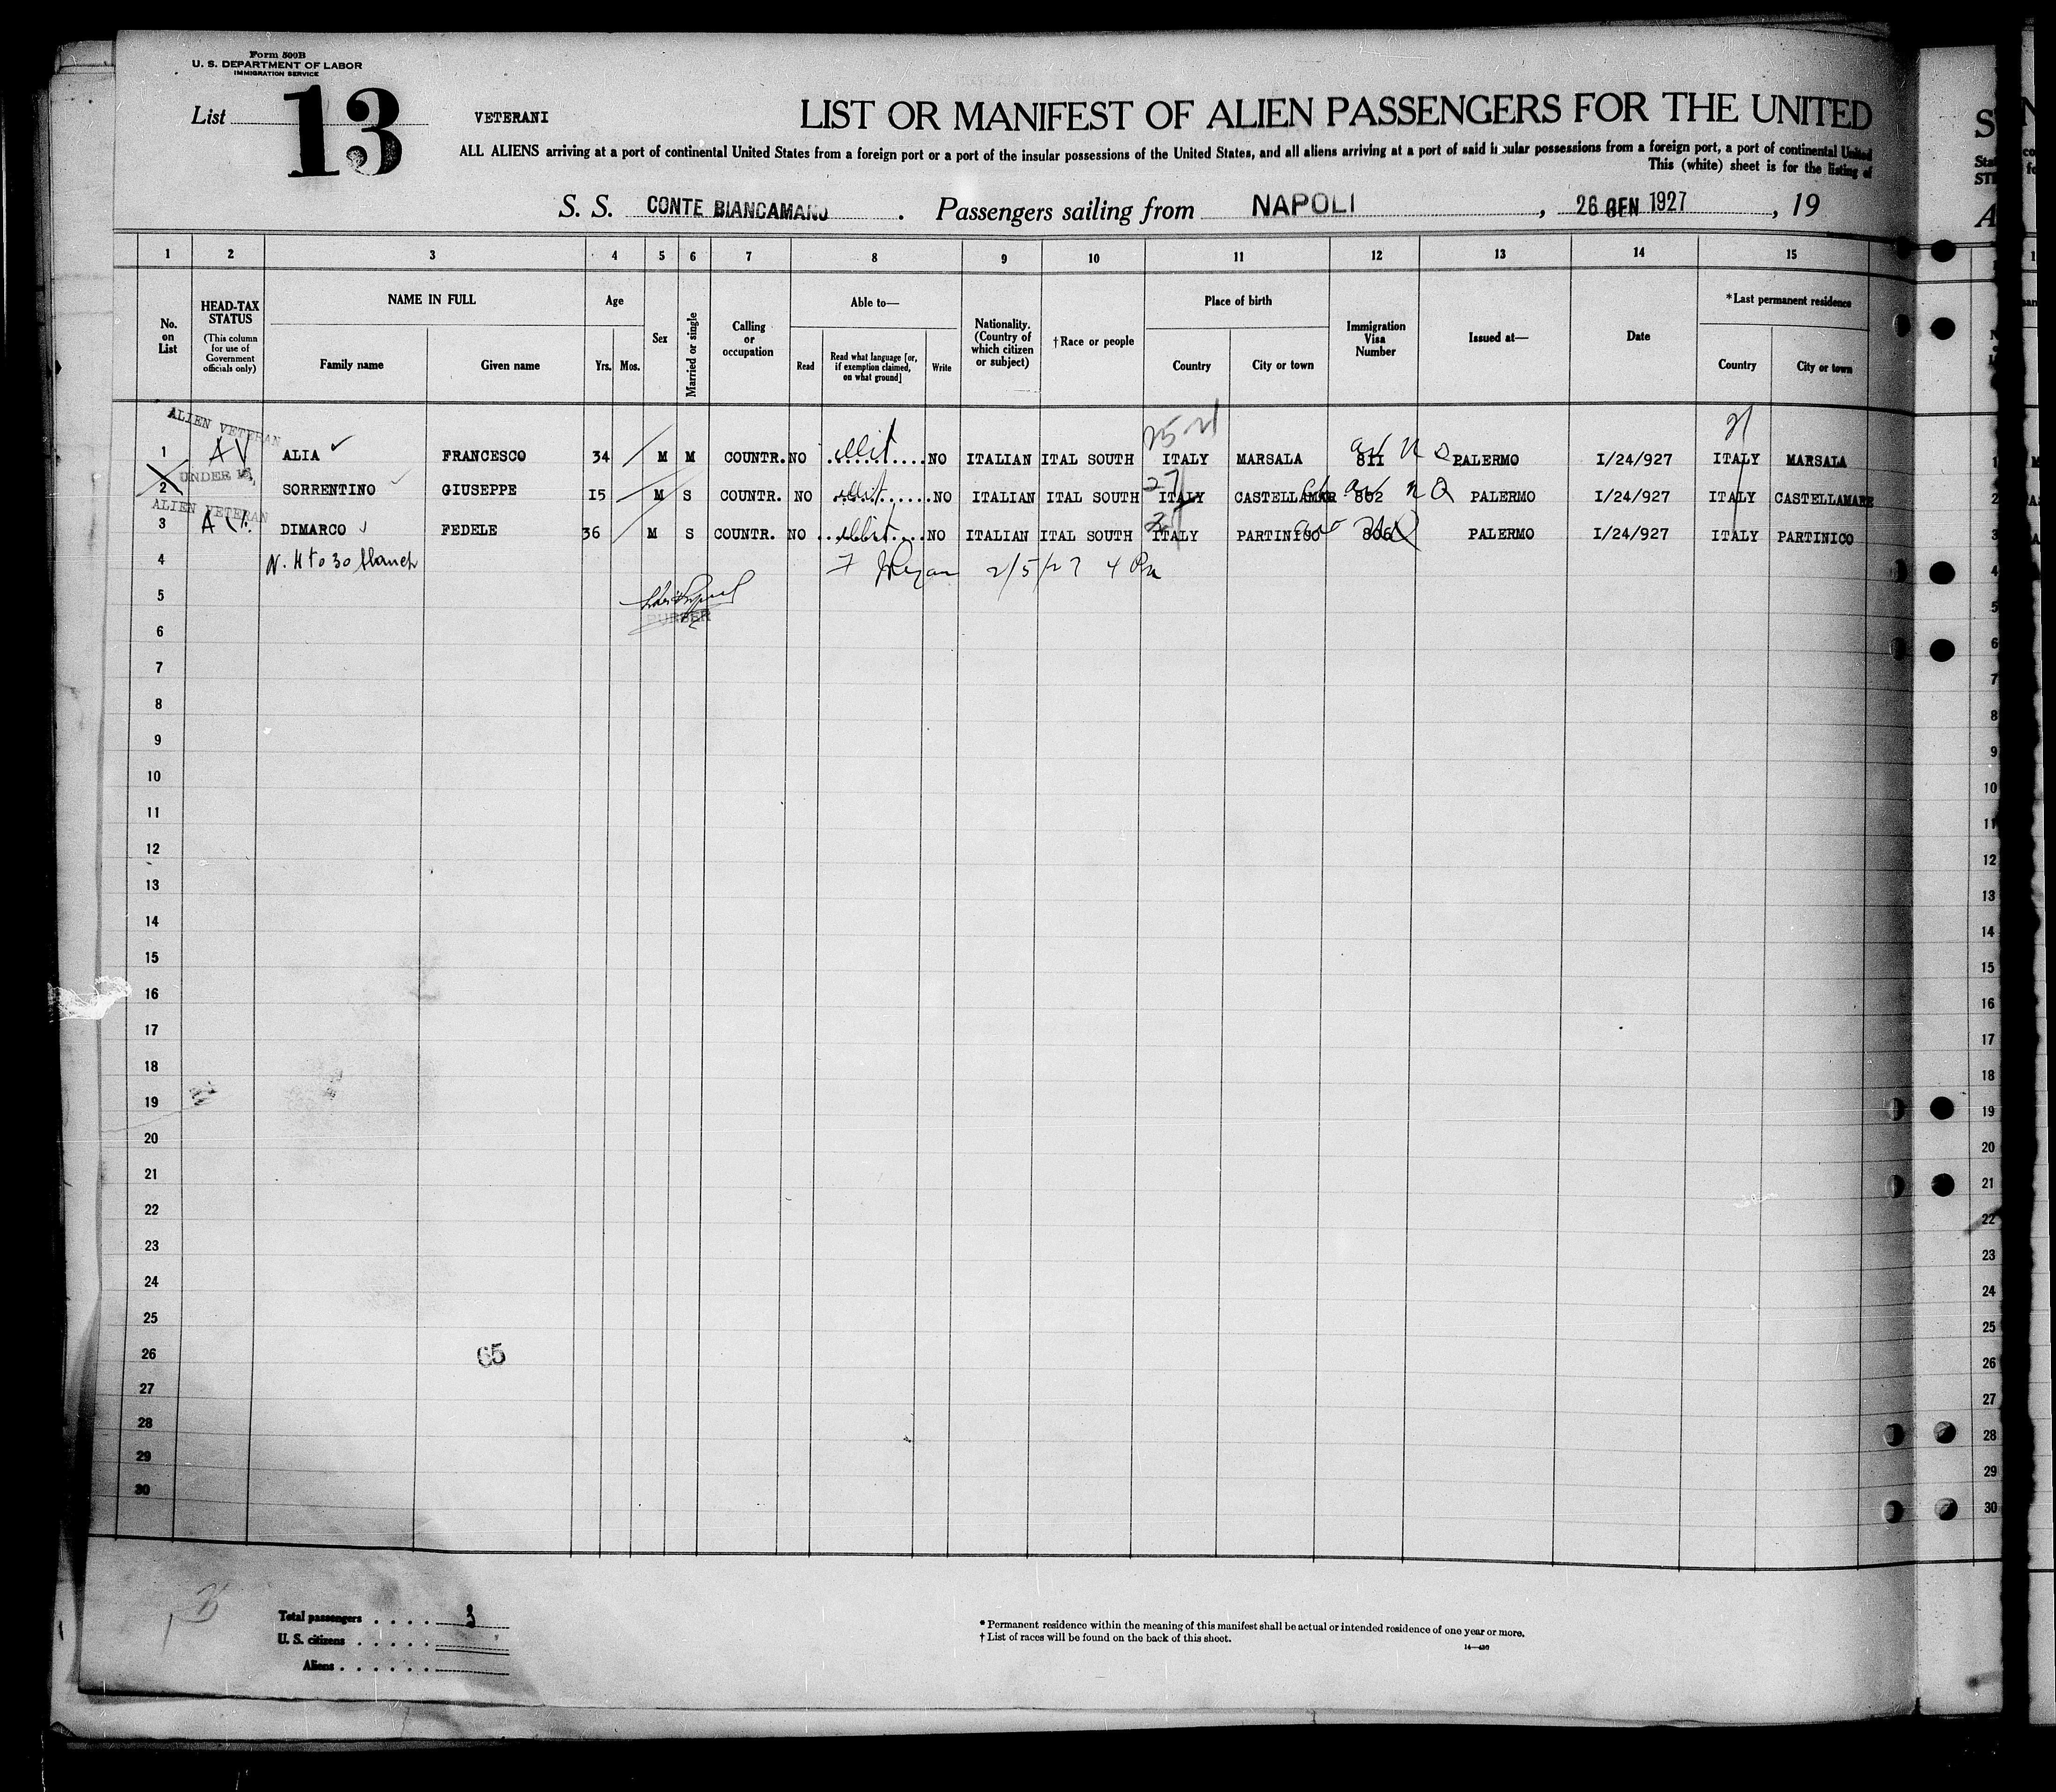 Form 500B
U. S. DEPARTMENT OF LABOR
IMMIGRATION SERVICE
List 13
VETERANI
LIST OR MANIFEST OF ALIEN PASSENGERS FOR THE UNITED
ALL ALIENS arriving at a port of continental United States from a foreign port or a port of the insular possessions of the United States, and all aliens arriving at a port of said insular possessions from a foreign port, a port of continental United
This (white) sheet is for the listing of
S. S. CONTE BIANCAMANO . Passengers sailing from NAPOLI , 26 GEN 1927 , 19
1 2 3 4 5 6 7 8 9 10 11 12 13 14 15
No. on List
HEAD-TAX STATUS
(This column for use of Government officials only)
NAME IN FULL
Family name Given name
Age
Yrs. Mos.
Sex
Married or single
Calling or occupation
Able to—
Read
Read what language [or, if exemption claimed, on what ground]
Write
Nationality. (Country of which citizen or subject)
†Race or people
Place of birth
Country City or town
Immigration Visa Number
Issued at—
Date
*Last permanent residence
Country City or town
ALIEN VETERAN
25-21 21
1 AV ALIA FRANCESCO 34 M M COUNTR. NO Illit NO ITALIAN ITAL SOUTH ITALY MARSALA 811 PALERMO I/24/927 ITALY MARSALA
UNDER 16,
2 SORRENTINO GIUSEPPE I5 M S COUNTR. NO Illit NO ITALIAN ITAL SOUTH ITALY CASTELLAMAR 802 PALERMO I/24/927 ITALY CASTELLAMARE
ALIEN VETERAN
3 DIMARCO FEDELE 36 M S COUNTR. NO NO ITALIAN ITAL SOUTH ITALY PARTINICO 806 PALERMO I/24/927 ITALY PARTINICO
4 2/5/27
5
PURSER
6
7
8
9
10
11
12
13
14
15
16
17
18
19
20
21
22
23
24
25
26 65
27
28
29
30
Total passengers . . . . 3
U. S. citizens . . . . .
Aliens . . . . . .
* Permanent residence within the meaning of this manifest shall be actual or intended residence of one year or more.
† List of races will be found on the back of this sheet.